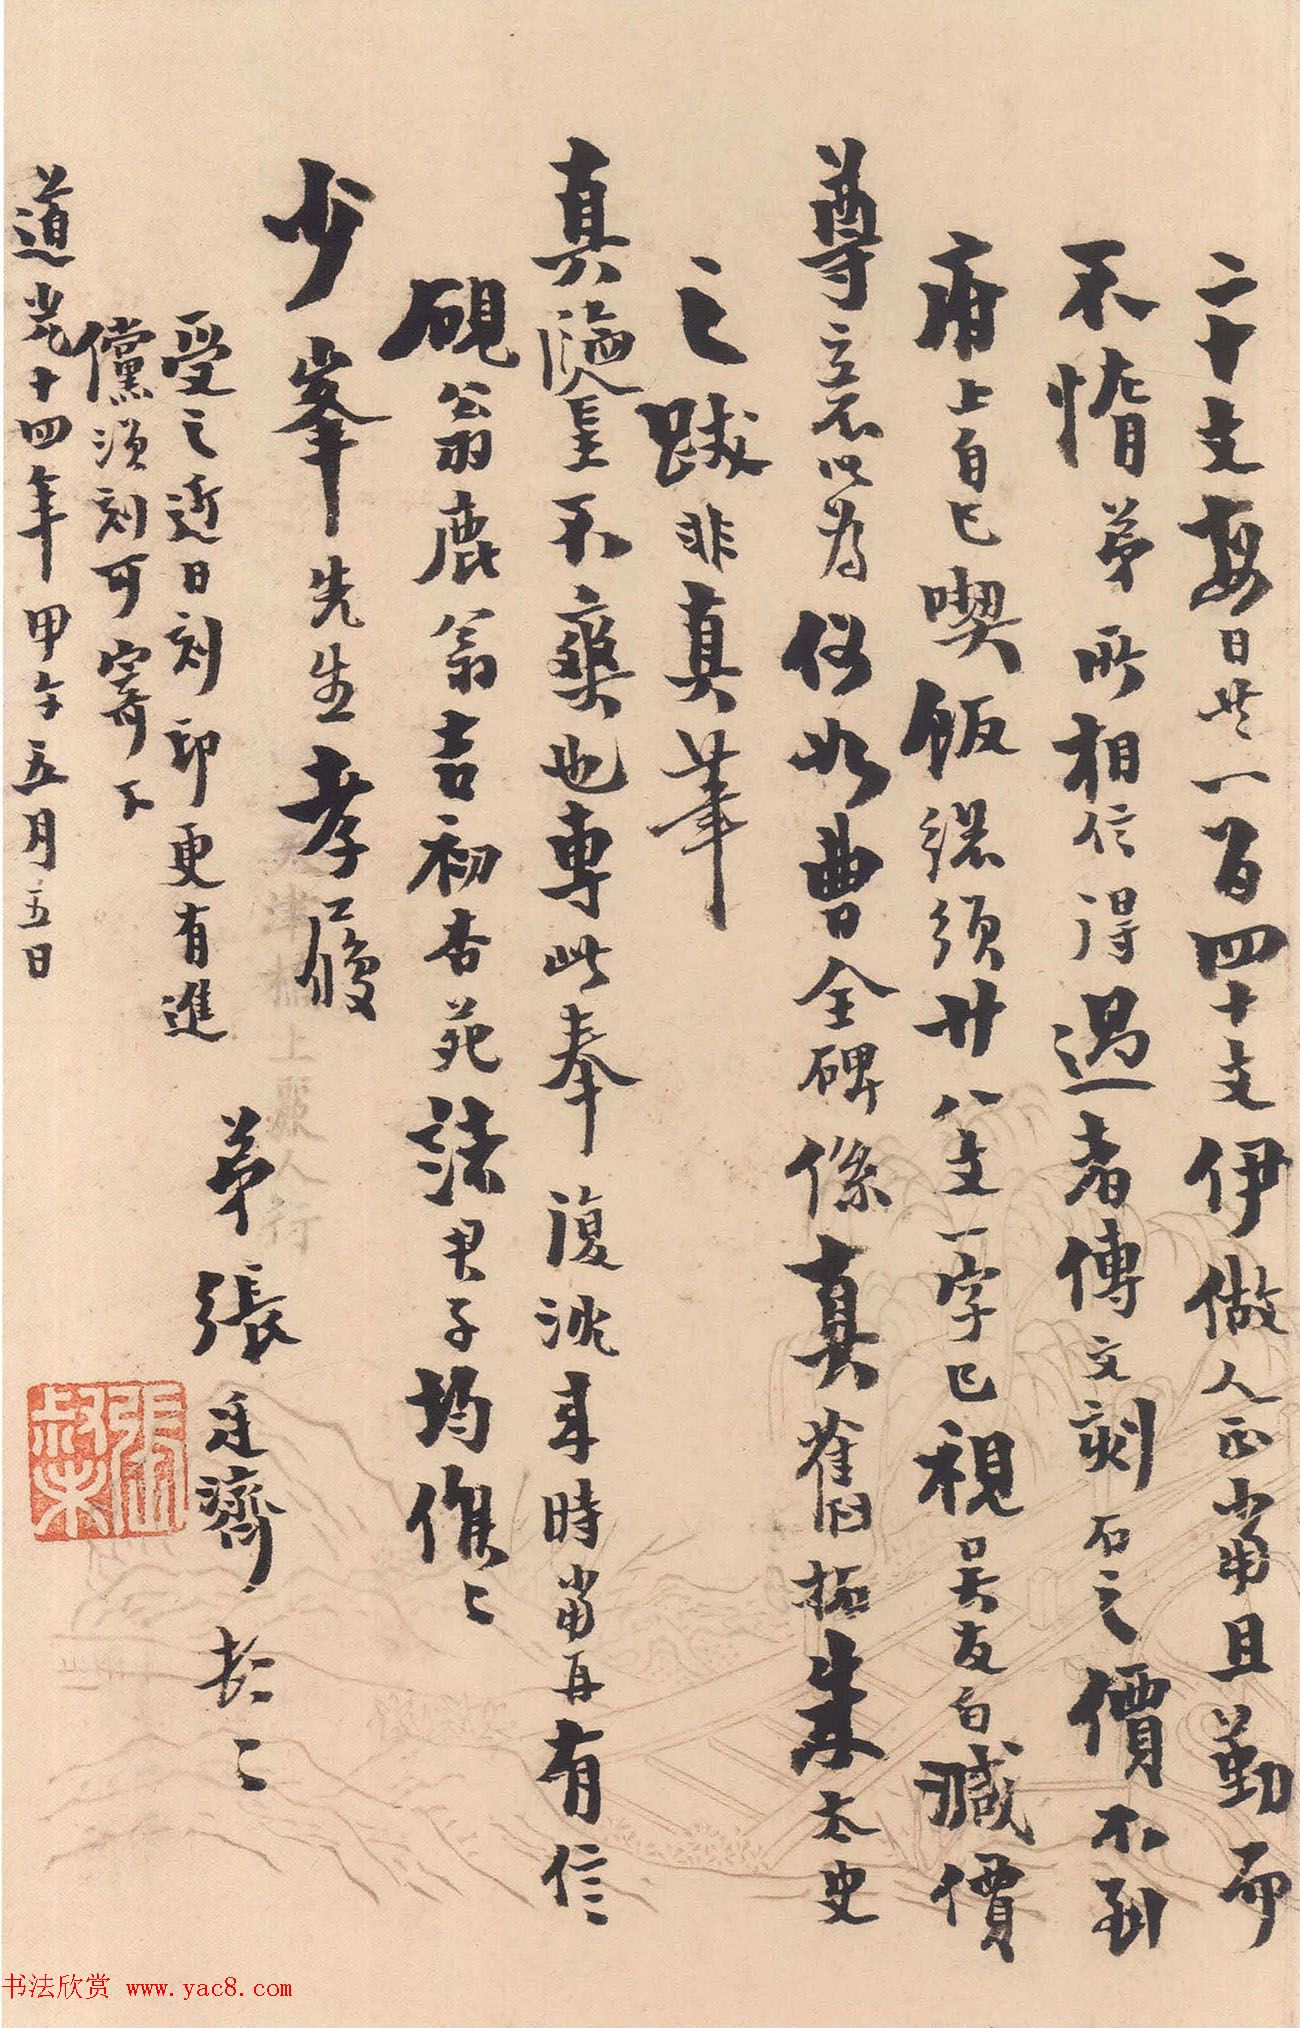 二十文每日共一百四十文伊做人正当且勤而
不惰弟所相信得过者傳文刻石之價不到
府上自己喫飯總須廿八文一字已視吴友白減價
尊立不以為何如曹全碑係真舊拓朱太史
之跋非真筆
真墜不藥也專此奉復沈来時当再有信
硯翁鹿翁吉初杏苑諸君子均候〻
少峯先生孝履
弟張廷濟
受之近日刻印更有進
儻須刻可寄下
道光十四年甲午五月五日
張叔未
天津橋上無人行
书法欣赏 www.yac8.com